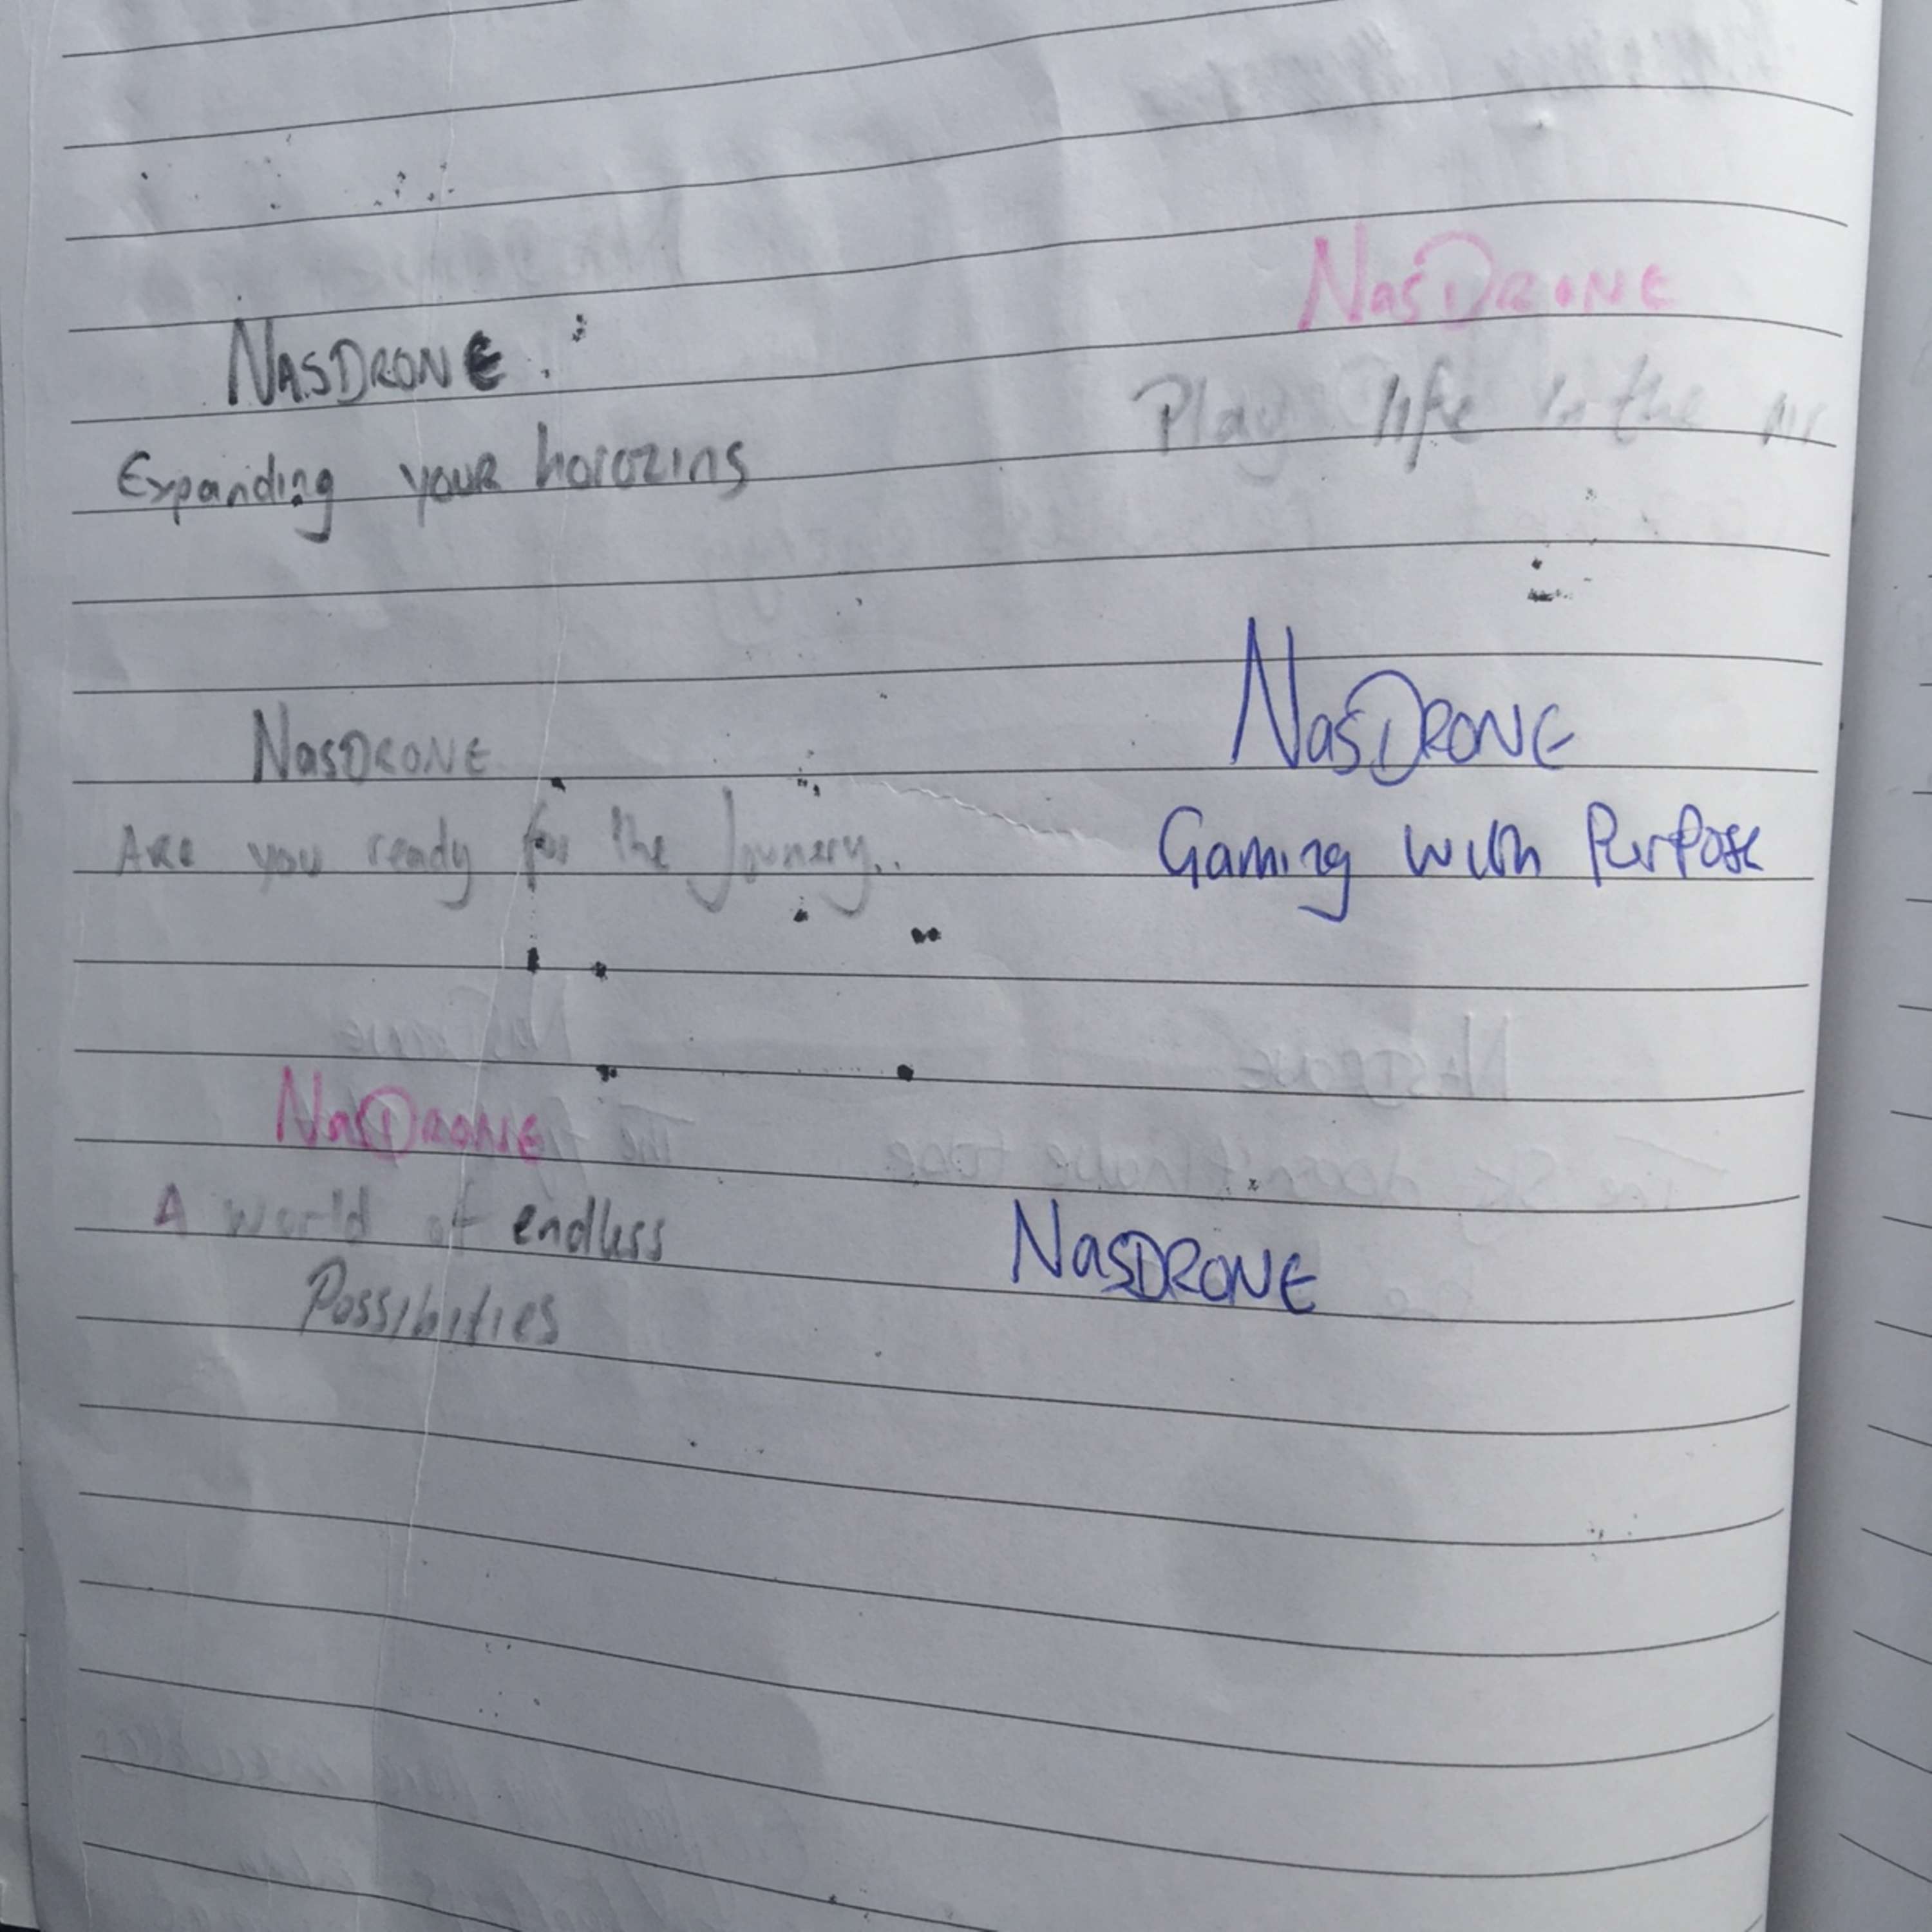 NASDRONE
Expanding your horozins
NasDRONE
Play life in the air
NasDRONE
Are you ready for the Jounery..
NasDRONE
Gaming with Purpose
NasDRONE
A world of endless
Possibities
NasDRONE